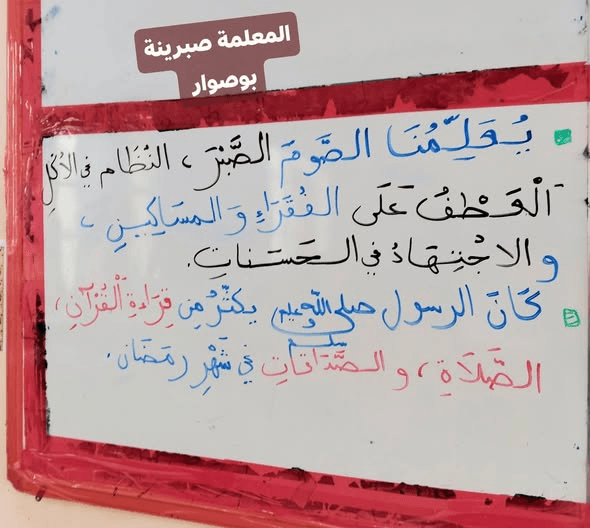 المعلمة صبرينة
بوصوار
يُعَلِّمُنَا الصَّومَ الصَّبْرَ ، النِّظَام في الأَكْلِ
الْعَطْفُ عَلَى الفُقَرَاءِ وَ المسَاكِينِ ،
و الاجْتِهَادُ في الحَسَنَاتِ.
كَانَ الرسول صلى الله عليه وسلم يكثِّرُ مِن قِرَاءَةِ الْقُرْآنِ ،
الصَّلَاةِ ، و الصَّدَقَاتِ في شَهْرِ رمَضَان.